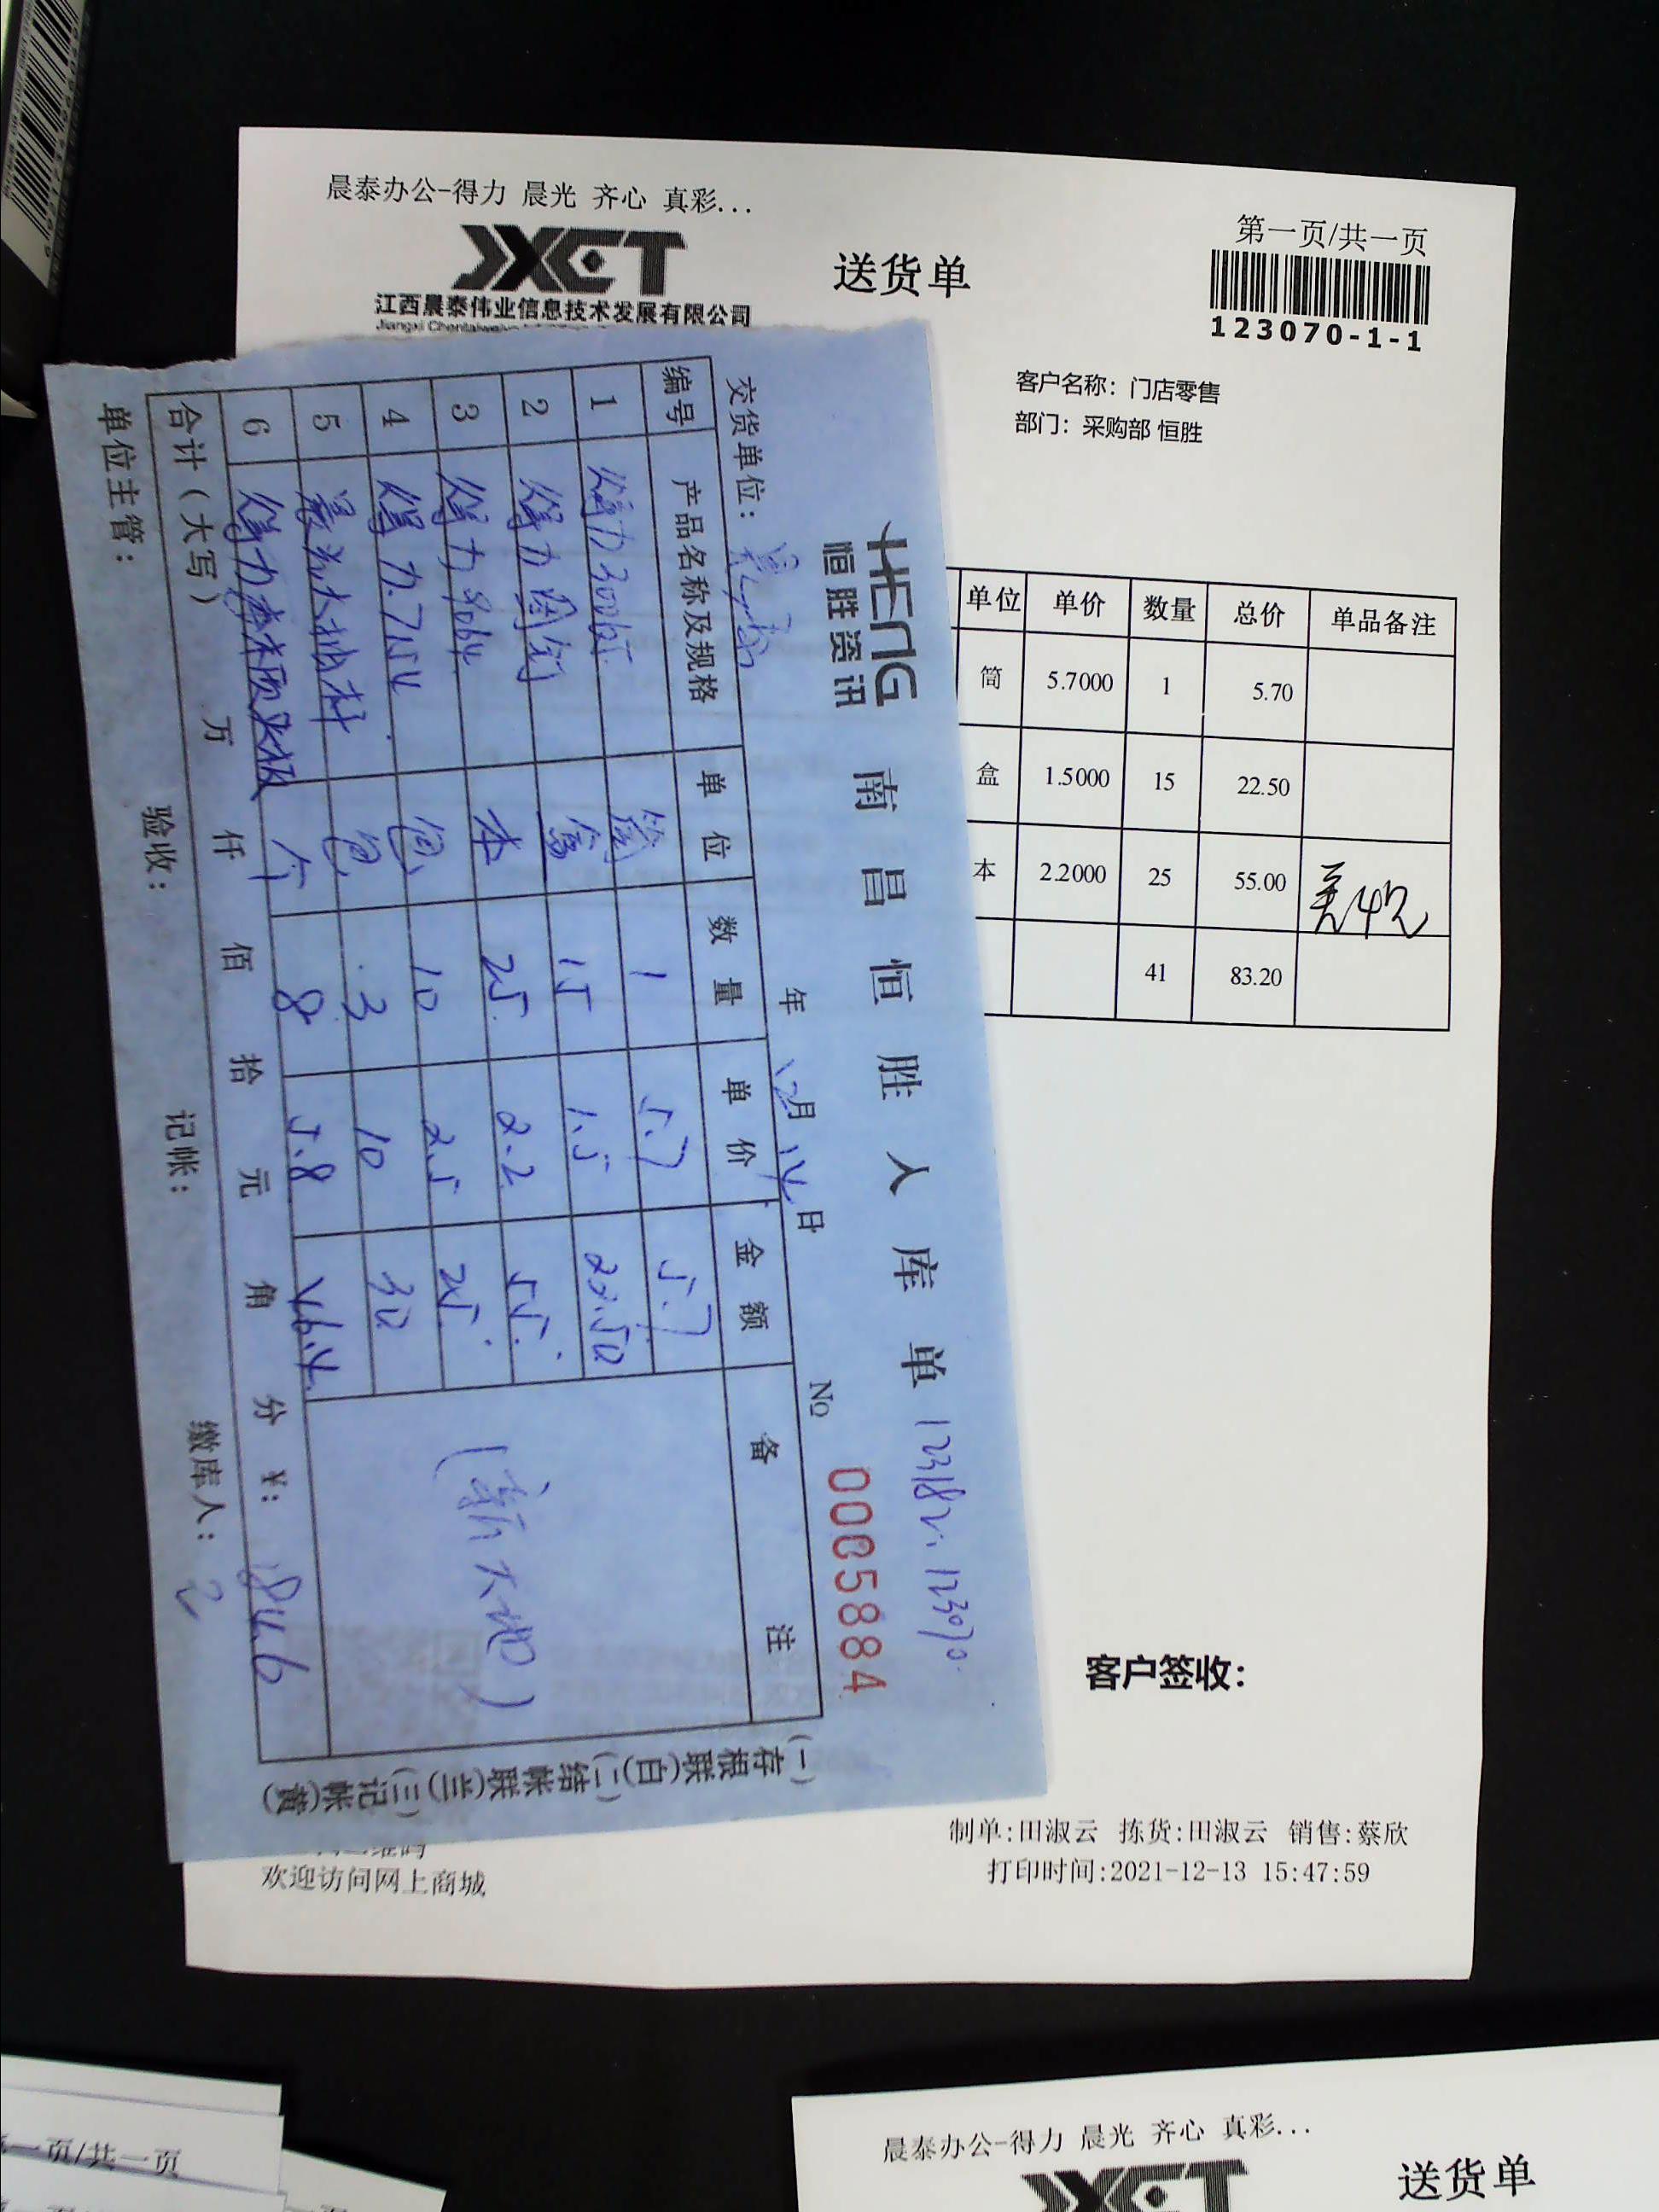 晨泰办公-得力 晨光 齐心 真彩...
JXCT
江西晨泰伟业信息技术发展有限公司
送货单
第一页/共一页
123070-1-1
客户名称：门店零售
部门：采购部 恒胜
单位 单价 数量 总价 单品备注
筒 5.7000 1 5.70
盒 1.5000 15 22.50
本 2.2000 25 55.00
41 83.20
客户签收：
制单:田淑云 拣货:田淑云 销售:蔡欣
打印时间:2021-12-13 15:47:59
欢迎访问网上商城
HENG
恒胜资讯
南昌恒胜人库单 123182. 123070.
交货单位： 年 12月14日 № 0005884
编号 产品名称及规格 单位 数量 单价 金额 备注
1 得力 筒 1 5.7 5.7
2 得力 盒 15 1.5 22.50
3 得力 本 25 2.2 55.
4 得力 包 10 2.5 25.
5 晨光大抽杆 包 3 10 30
6 得力 个 8 5.8 46.4
(新大地)
合计(大写) 万 仟 佰 拾 元 角 分 ¥: 184.6
单位主管： 验收： 记帐： 缴库人：
(一)存根联(白)(二)结帐联(兰)(三)记帐(黄)
一页/共一页
晨泰办公-得力 晨光 齐心 真彩...
送货单